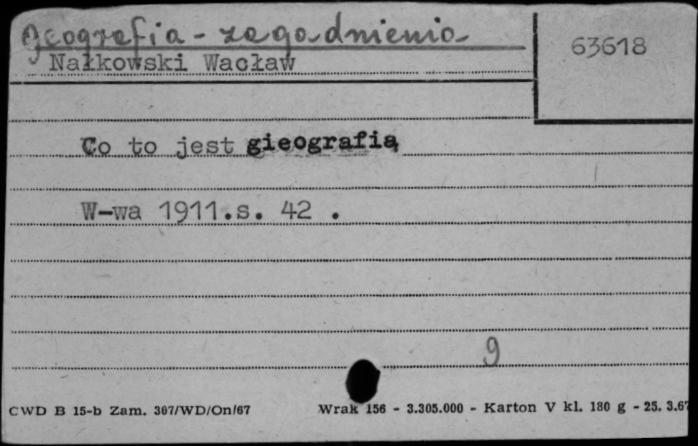 geografia - zagadnienia
63618
Nałkowski Wacław
Co to jest gieografią
W-wa 1911.s. 42 .
9
CWD B 15-b Zam. 307/WD/On/67 Wrak 156 - 3.305.000 - Karton V kl. 180 g - 25. 3.67